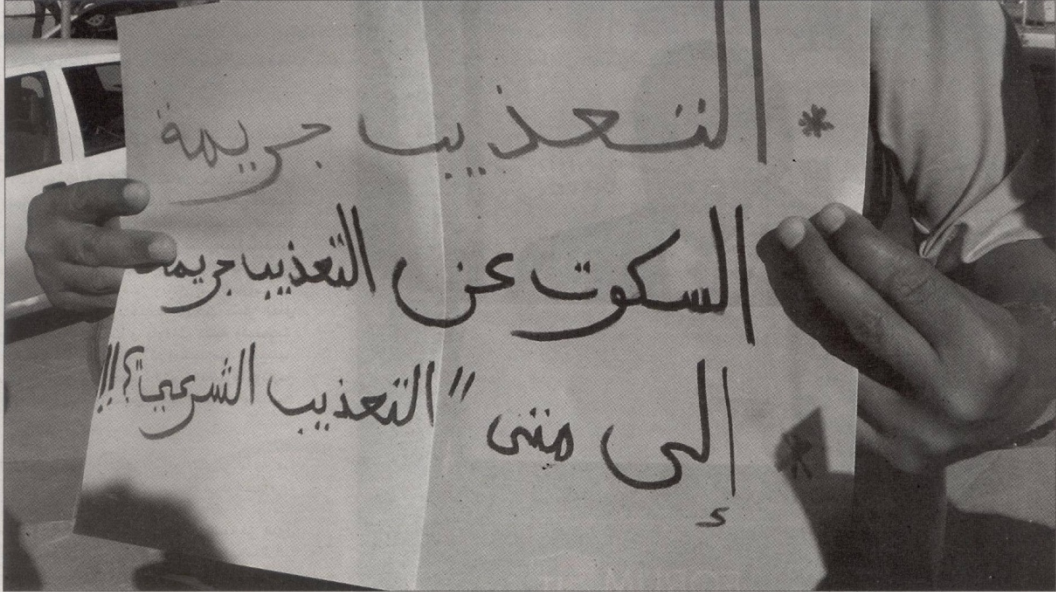 * التعذيب جريمة
السكوت عن التعذيب جريمة
* إلى متى "التعذيب الشرعي"؟!!!